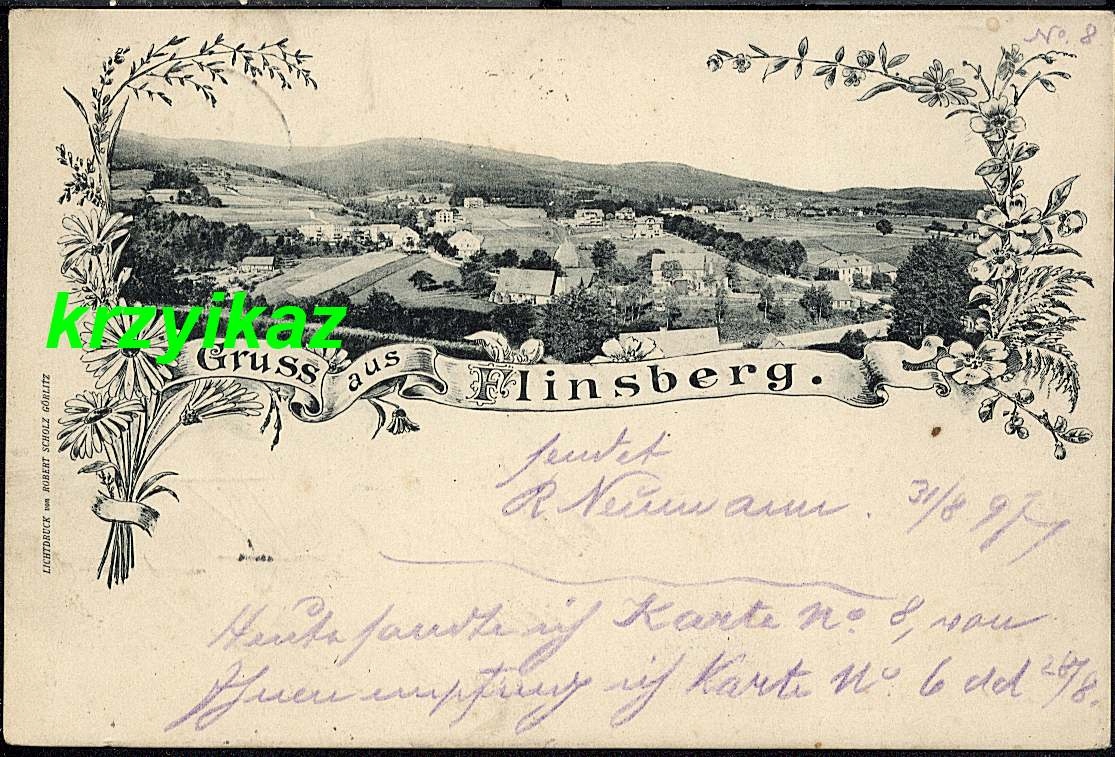 No. 8
krzyikaz
Gruss aus Flinsberg.
LICHTDRUCK von ROBERT SCHOLZ GÖRLITZ
sendet
R. Neumann. 31/8 97
Heute sandte ich Karte No. 8, von
Ihnen empfing ich Karte No. 6 dd /8.